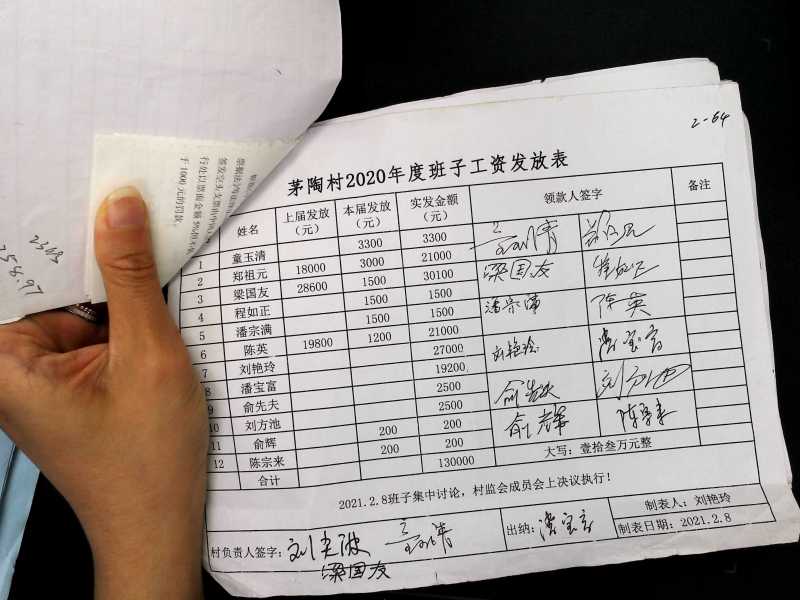 2-64
茅陶村2020年度班子工资发放表
姓名 上届发放（元） 本届发放（元） 实发金额（元） 领款人签字 备注
1 童玉清 3300 3300
2 郑祖元 18000 3000 21000
3 梁国友 28600 1500 30100 梁国友
4 程如正 1500 1500
5 潘宗满 1500 1500 潘宗满 陈英
6 陈英 19800 1200 21000
7 刘艳玲 27000 刘艳玲 潘宝富
8 潘宝富 19200
9 俞先夫 2500 刘方池
10 刘方池 2500
11 俞辉 200 200 俞辉 陈宗来
12 陈宗来 200 200
合计 130000 大写：壹拾叁万元整
2021.2.8班子集中讨论，村监会成员会上决议执行！
村负责人签字： 出纳：潘宝富 制表人：刘艳玲
制表日期：2021.2.8
梁国友
签发空头支票由中国人
行处以票面金额5%但不低
于1000元的罚款。
2363
258.97